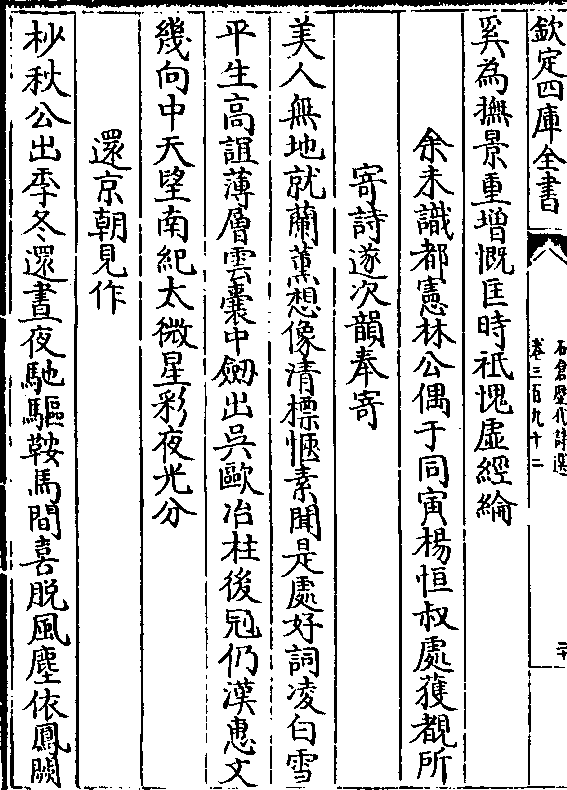 欽定四庫全書
石倉歷代詩選
卷三百九十二
二十
奚為撫景重增慨匡時祇愧虛經綸
余未識都憲林公偶于同寅楊恒叔處獲覩所
寄詩遂次韻奉寄
美人無地就蘭薰想像清標愜素聞是處好詞凌白雪
平生高誼薄層雲囊中劔出吳歐冶柱後冠仍漢惠文
幾向中天望南紀太微星彩夜光分
還京朝見作
杪秋公出季冬還晝夜馳驅鞍馬間喜脱風塵依鳳闕